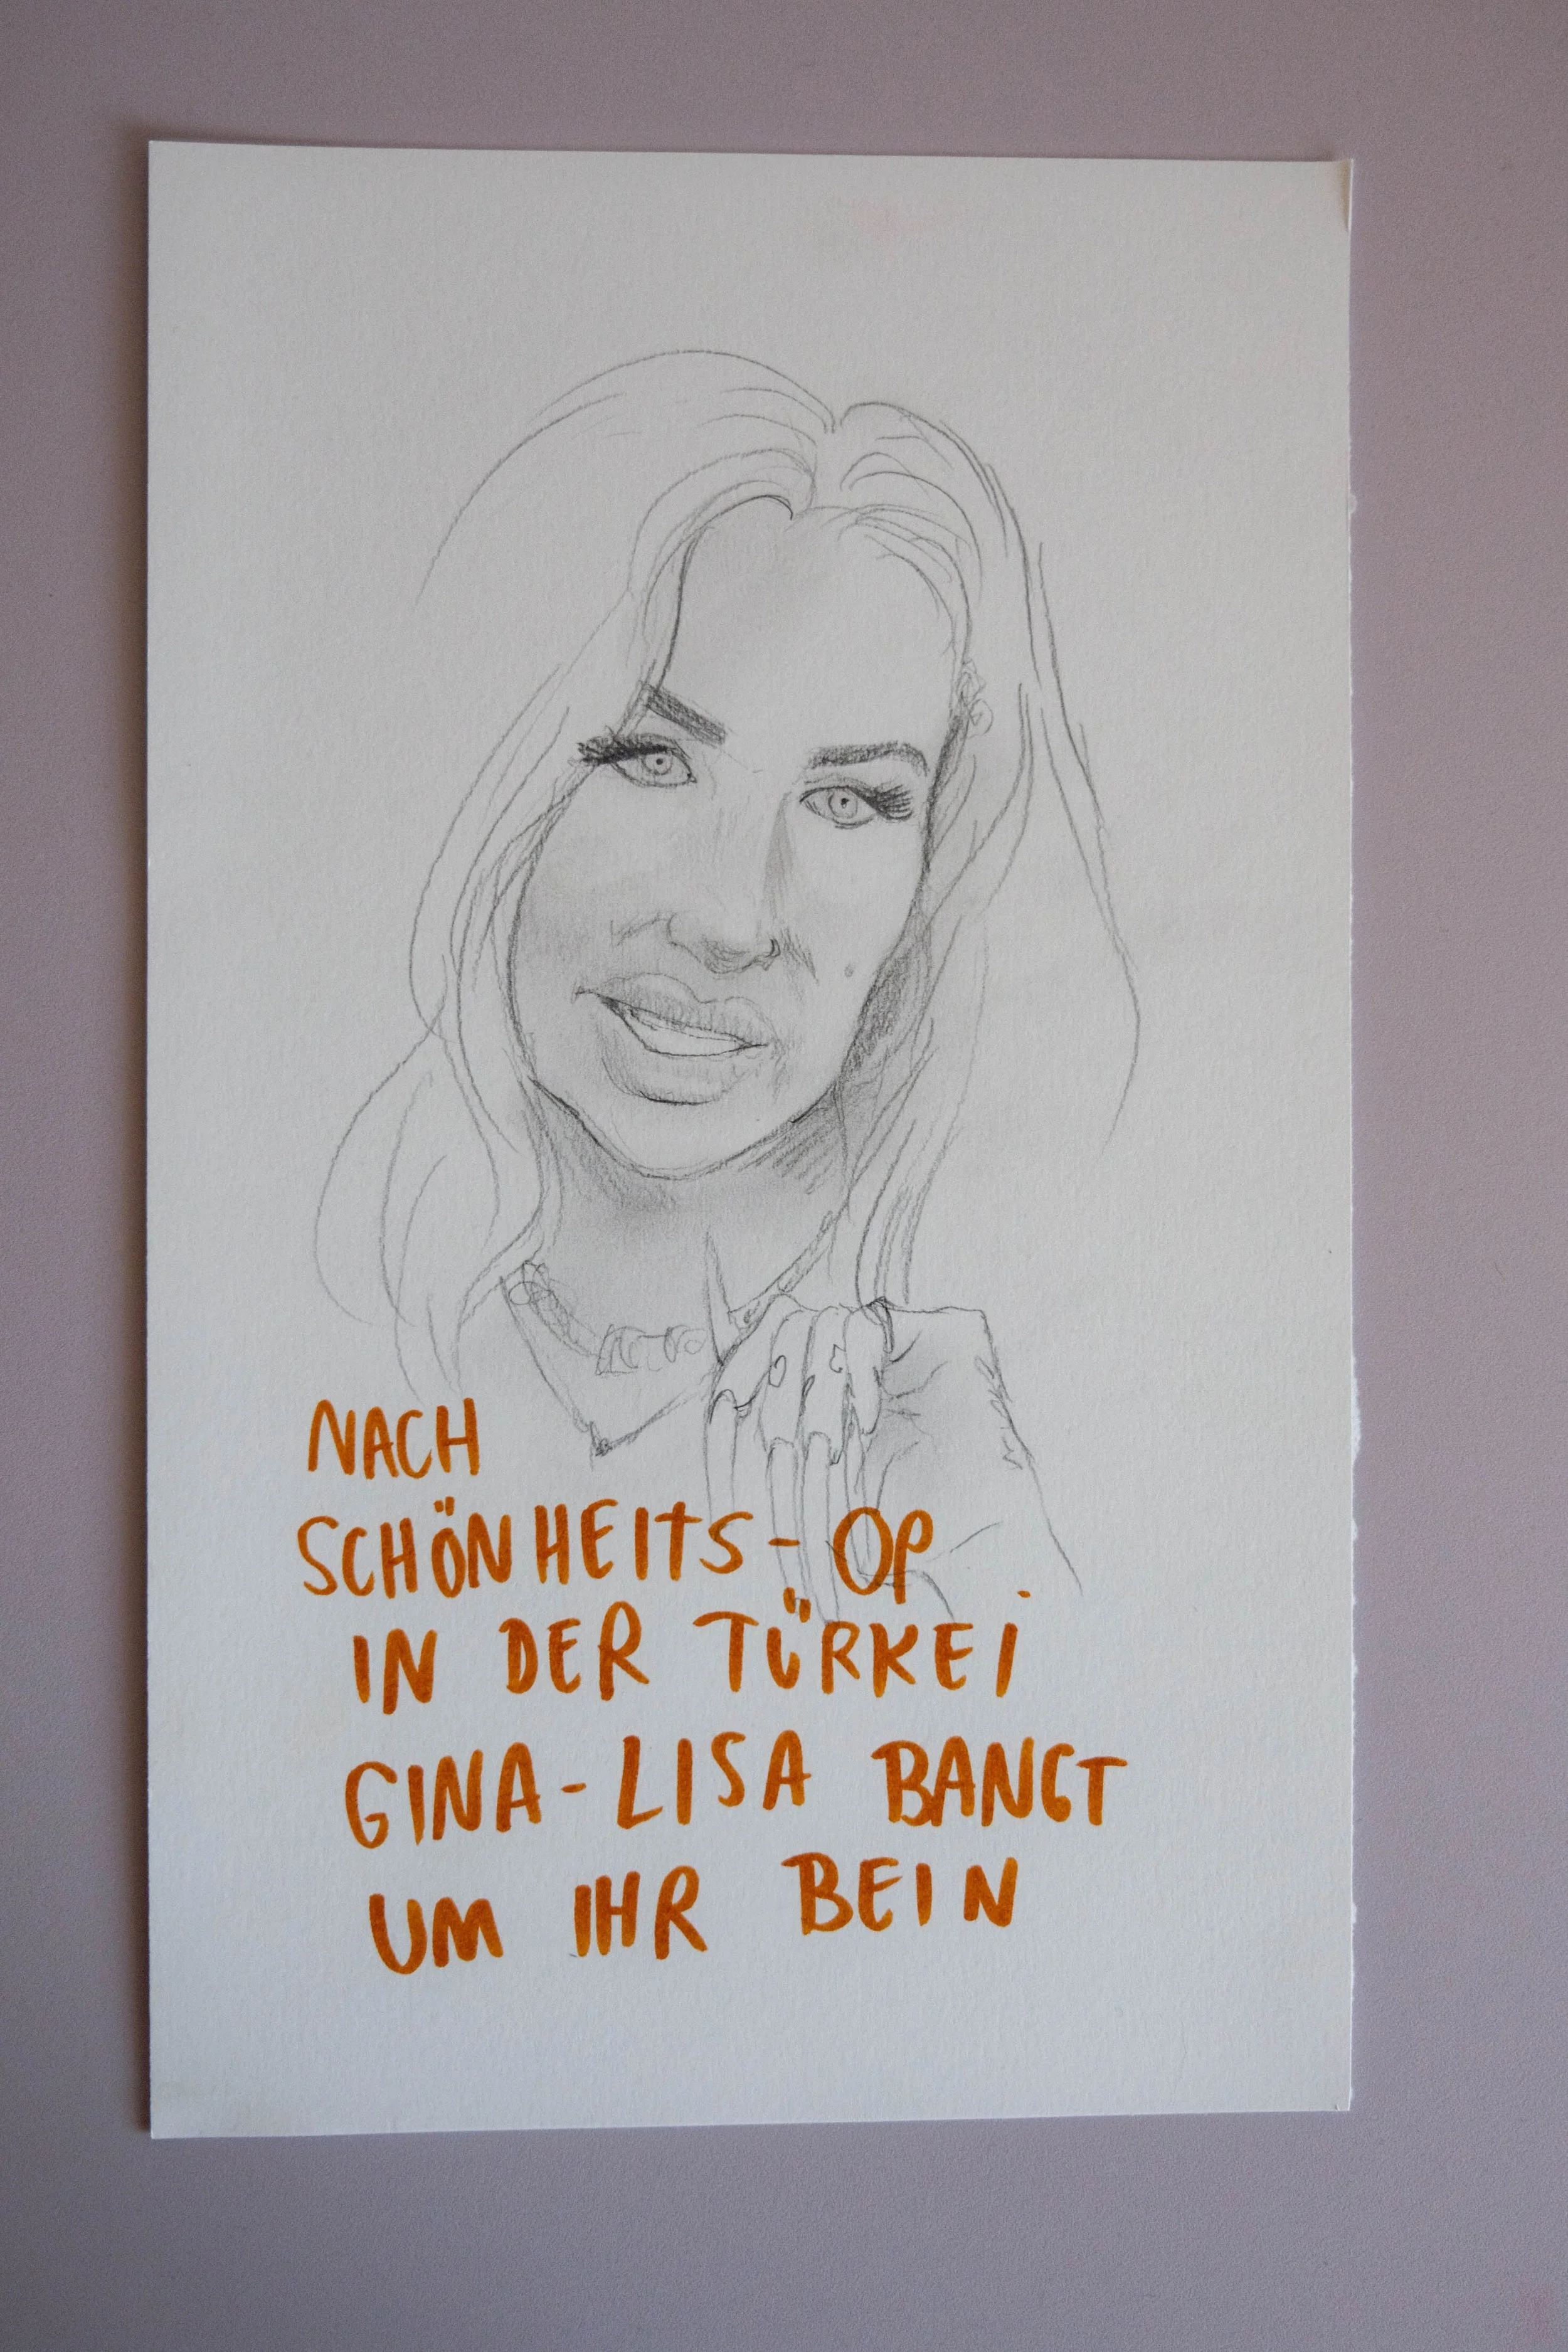 NACH
SCHÖNHEITS-OP
IN DER TÜRKEI
GINA-LISA BANGT
UM IHR BEIN